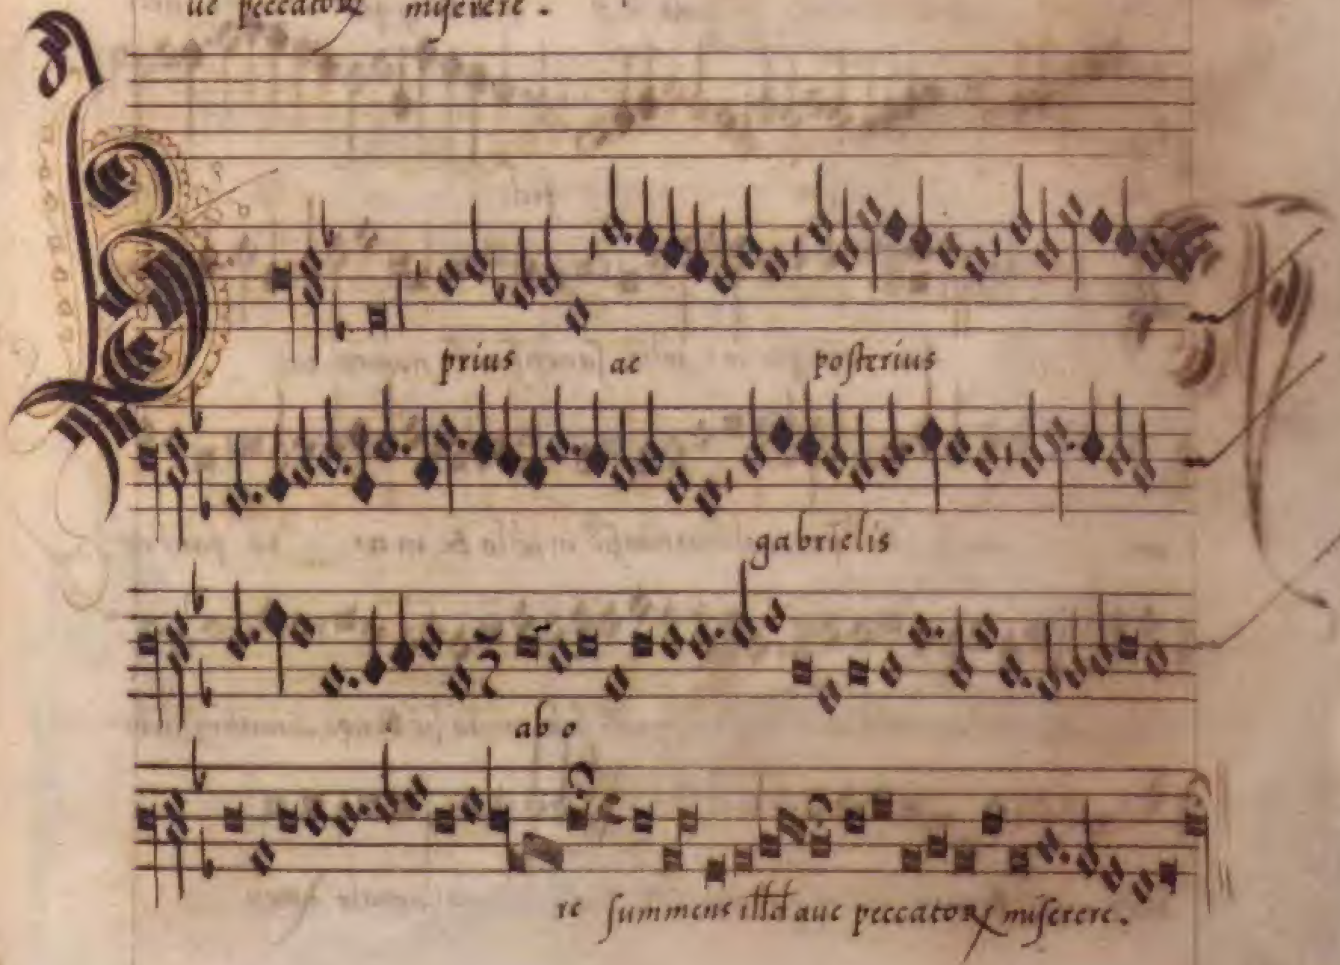 ue peccatorꝝ miserere.
prius ac posterius
gabrielis
ab o
re summens illud aue peccatorꝝ miserere.